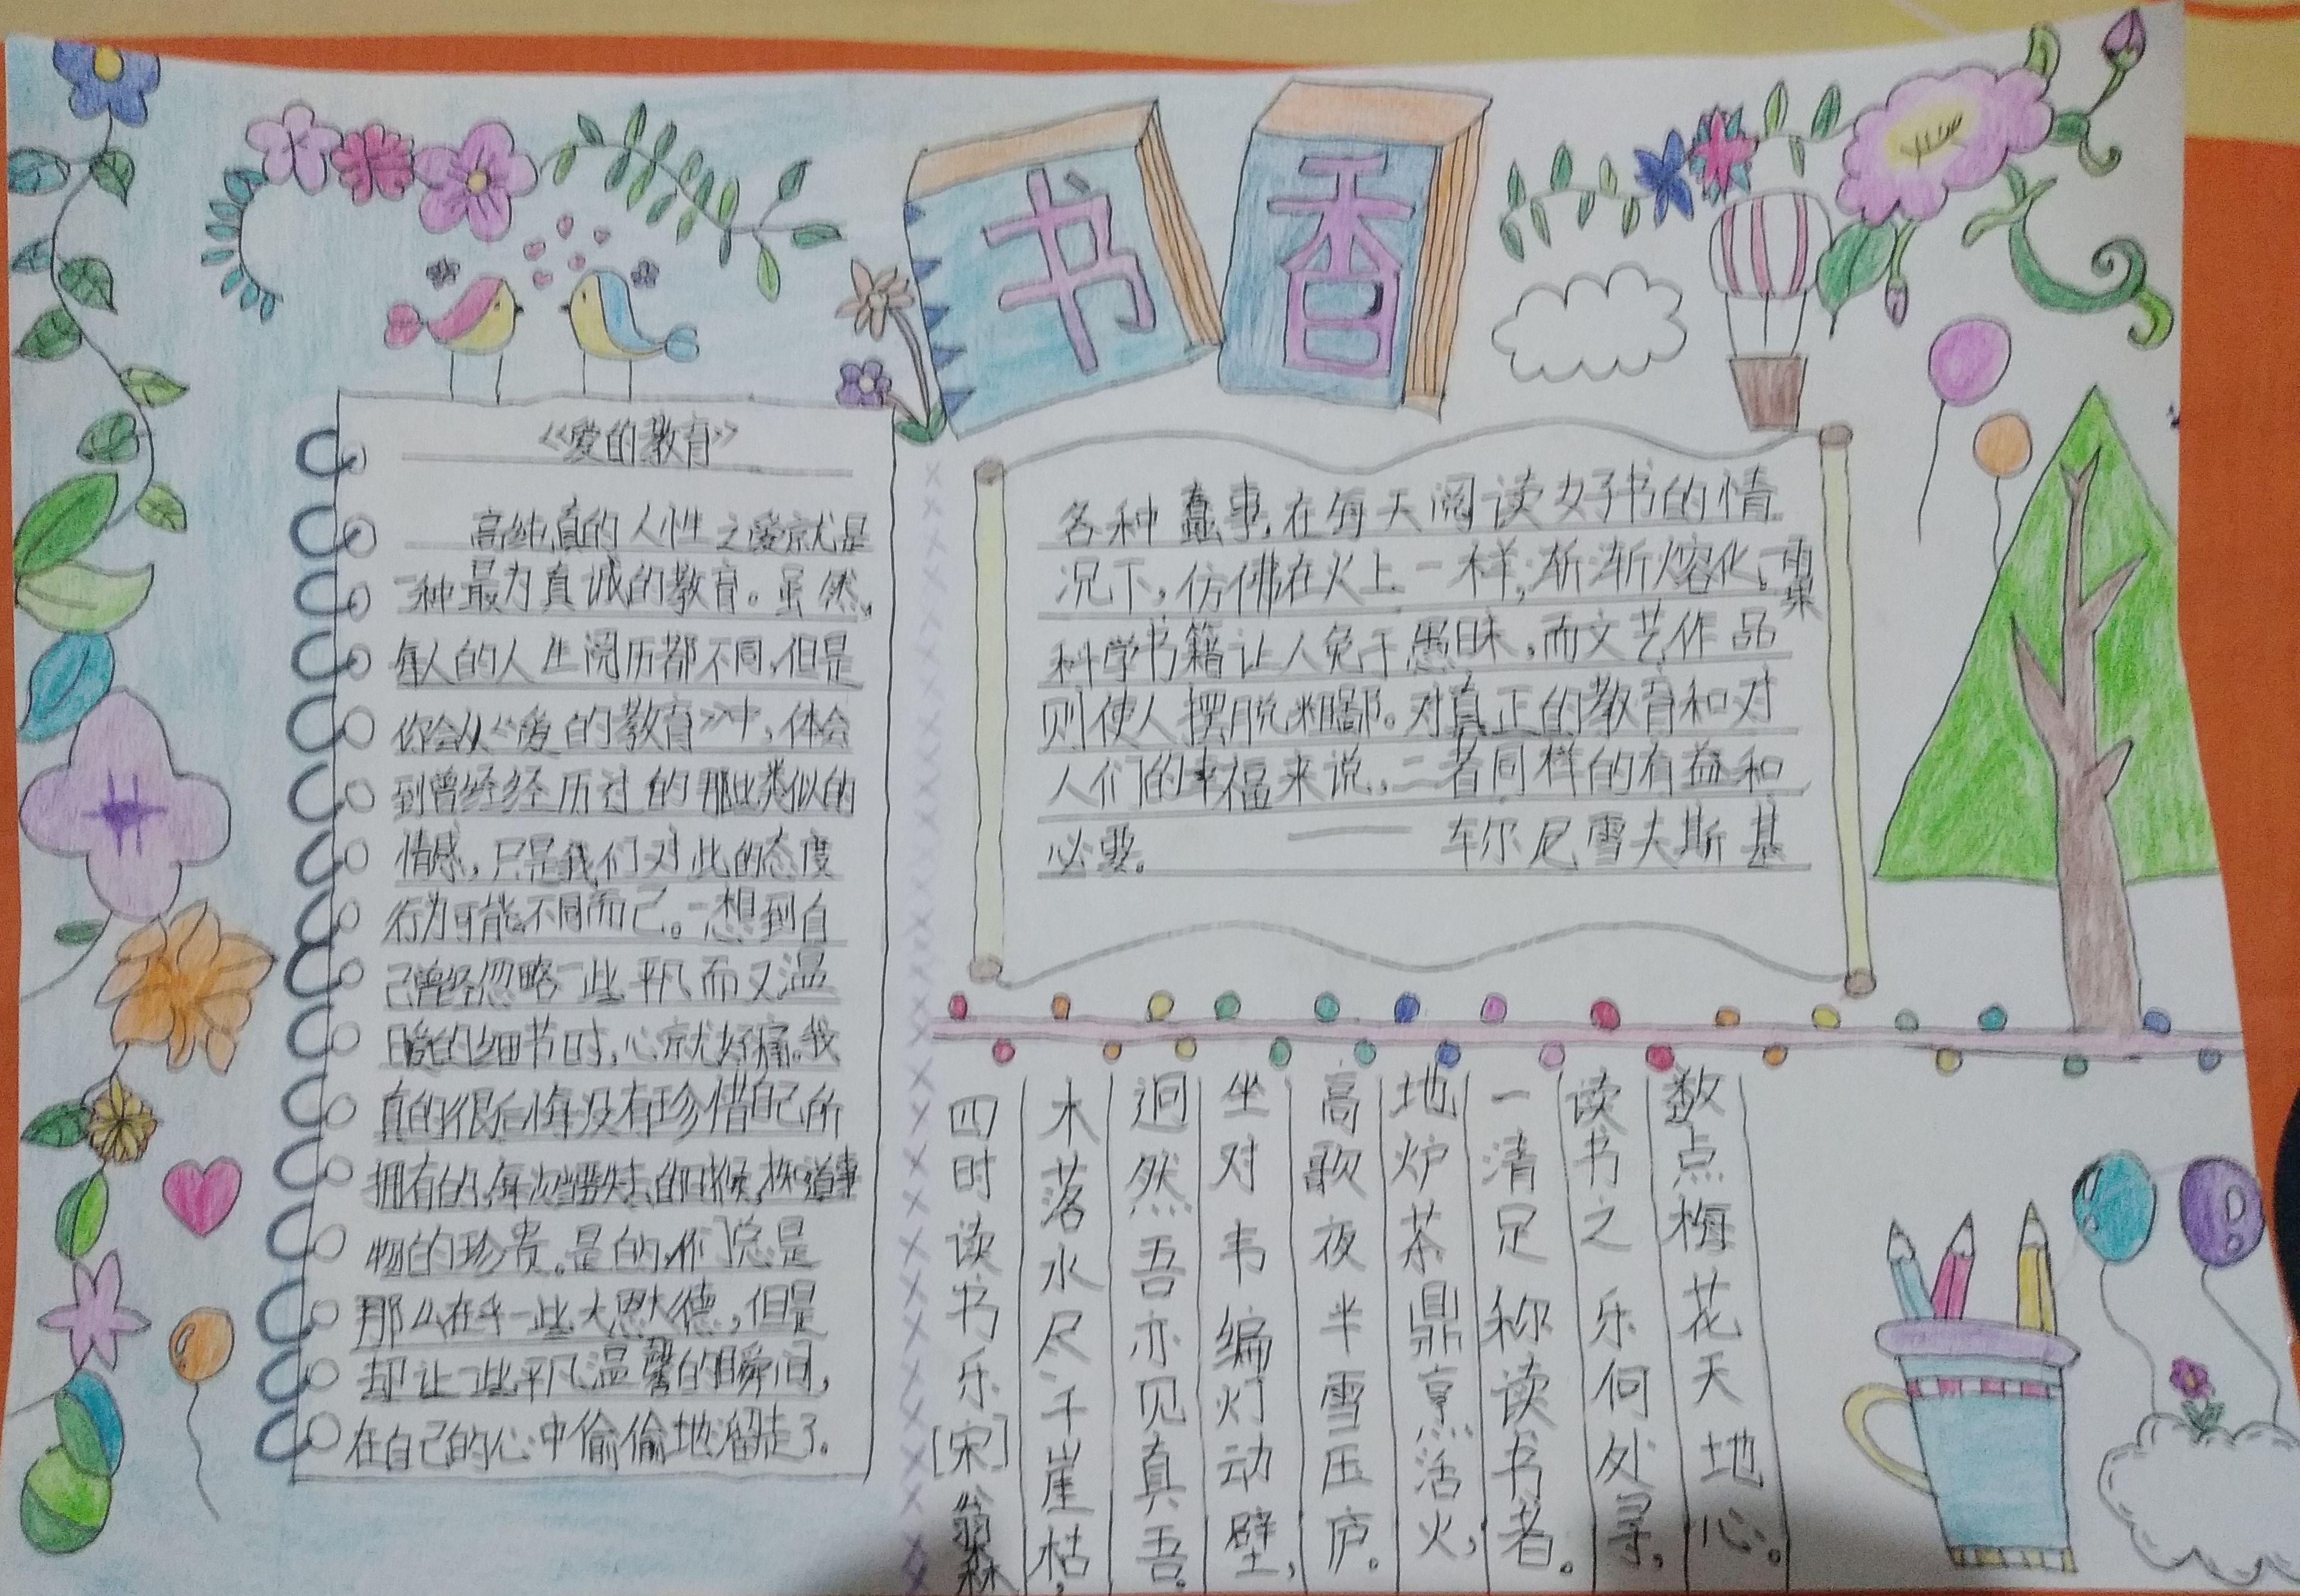 书香
《爱的教育》
高纯真的人性之爱就是
一种最为真诚的教育。虽然,
每人的人生阅历都不同,但是
你会从《爱的教育》中,体会
到曾经经历过的那些类似的
情感,只是我们对此的态度
行为可能不同而己。一想到自
己曾经忽略一些平凡而又温
暖的细节时,心就好痛。我
真的很后悔没有珍惜自己所
拥有的,每次当要失去的时候,才知道事
物的珍贵。是的,你们总是
那么在乎一些大恩大德,但是
却让一些平凡温馨的瞬间,
在自己的心中偷偷地溜走了。
各种蠢事,在每天阅读好书的情
况下,仿佛在火上一样,渐渐熔化。——雨果
科学书籍让人免于愚昧,而文艺作品
则使人摆脱粗鄙。对真正的教育和对
人们的幸福来说,二者同样的有益和
必要。——车尔尼雪夫斯基
四时读书乐[宋]翁森
木落水尽千崖枯,
迥然吾亦见真吾。
坐对韦编灯动壁,
高歌夜半雪压庐。
地炉茶鼎烹活火,
一清足称读书者。
读书之乐何处寻,
数点梅花天地心。